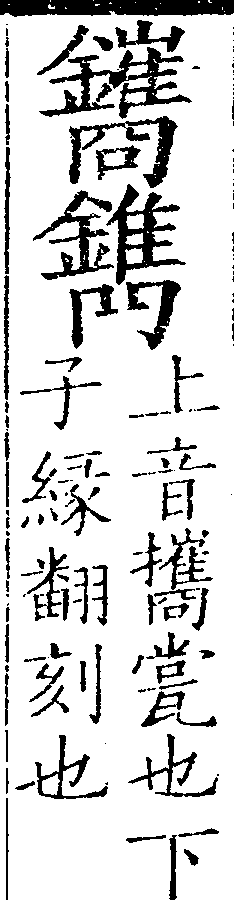 鑴鐫
上音攜瓽也下
子緣翻刻也